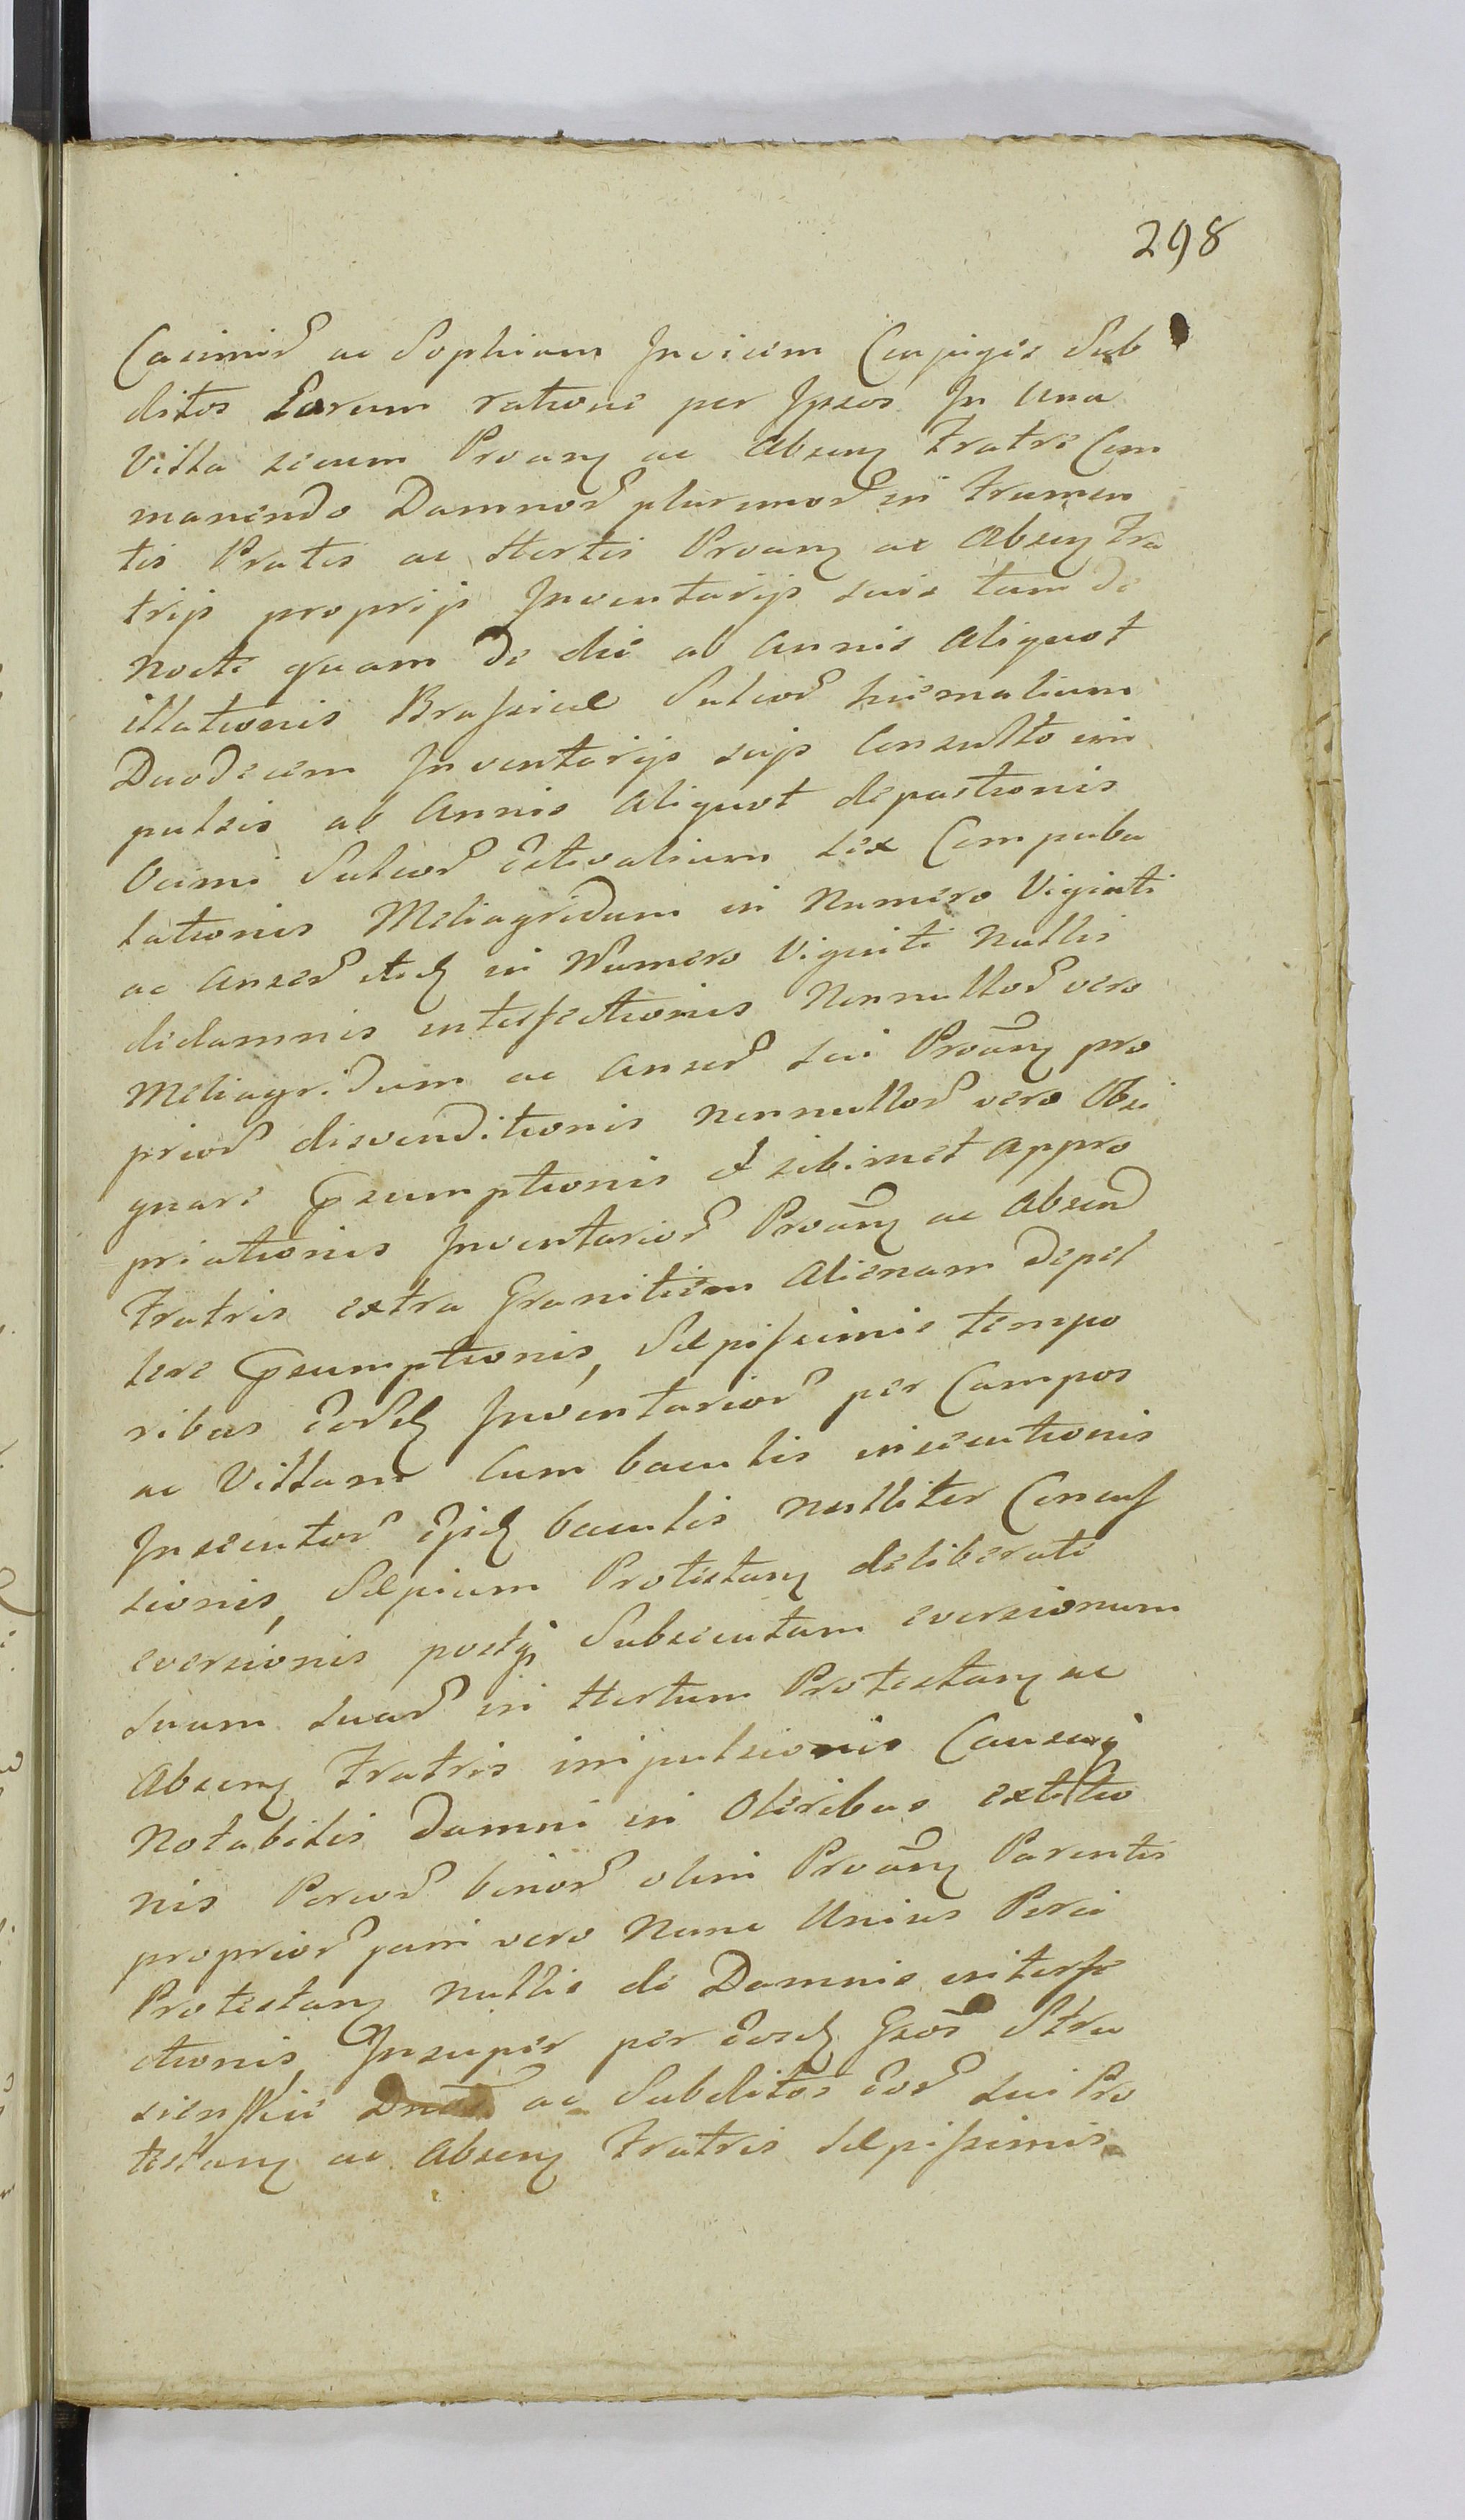 298
Casimir ac Sophiam Invicem Conjuges Sub
ditos Eorum ratione per Ipsos In una
Villa secum Proṽang ac Abseng Fratre Com
manendo Damnor plurimor in Frumen
tis Pratis ac Hortis Proang ac Abseng Fra
trijs proprijs Inventarijs suis tam de
Nocte quam de die ab Annis Aliquot
illationis Brassicae Sulcor hiemalium
Duodecem Inventarijs suis Consulto im
pulsis ab Annis Aliquot depastionis
Sulcor Estivalium sex Compubu
lationis Meliagridum in Numero Viginti
ac Anser itid in Numero Viginti Nullis
didamnis interfectionis Nonnullor vero
Meliagridum ac Anser sui Proang pro
prior disvenditionis nonnullor vero Obsi
gnare Psumptionis et sibimet Appro
priationis Inventarior Proang ac Absen
Fratris extra Granitiem Alienam depel
lere Psumptionis, Saepissimis tempo
ribus Eord Inventarior per Campos
ac Villam Cum baculis insecutionis
Insecutor ijsd baculis nulliter Concus
sionis, Sepium Protestang deliberate
eversionis postq Subsecutam eversionum
suum suar in Hortum Protestang ac
Abseng Fratris impulsionis Causaq
Notabilis damni in Oleribus extitio
nis Porcor binor olim Proang Parentis
proprior jam vero Nunc Unius Porci
Protestang nullis de Damnis interfe
ctionis, Insuper per Eosd Gsos Stru
sienskie Dnos ac Subditos Eor sui Pro
testang ac Abseng Fratris Saepissimis